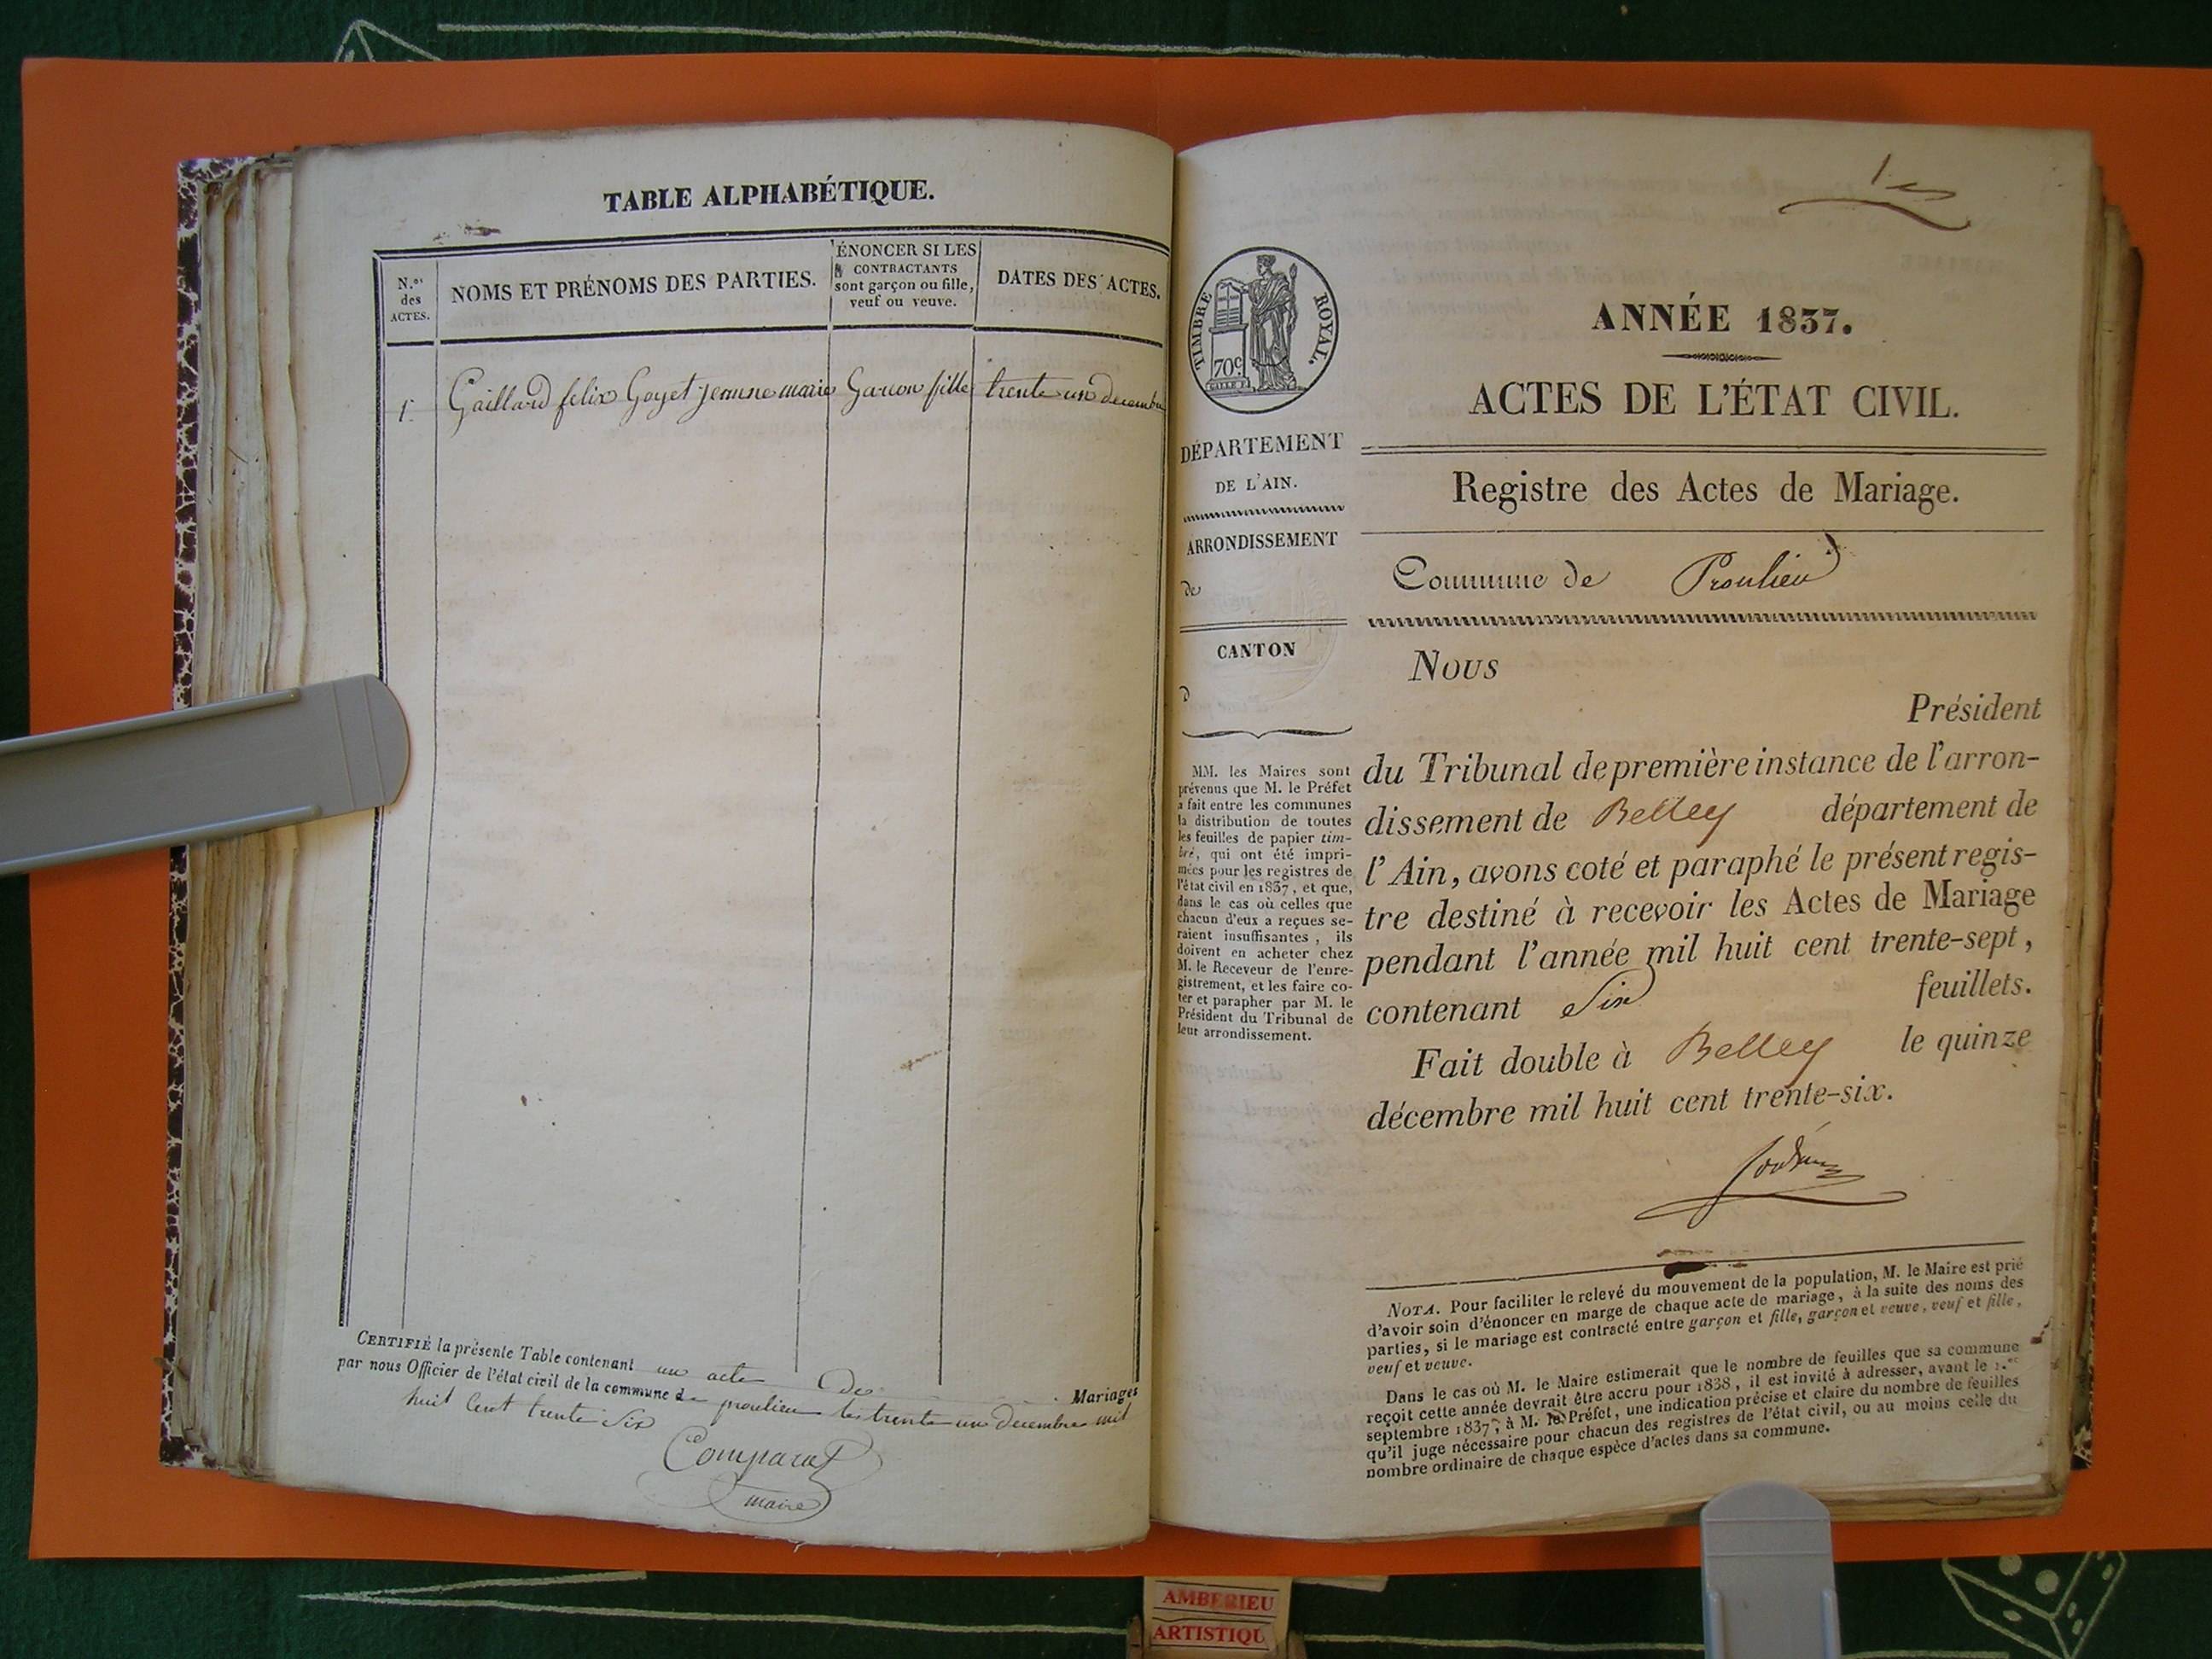 TABLE ALPHABÉTIQUE.
N.os
des
ACTES.
NOMS ET PRÉNOMS DES PARTIES.
ÉNONCER SI LES
CONTRACTANTS
sont garçon ou fille,
veuf ou veuve.
DATES DES ACTES.
1. Gaillard felix Goyet jeanne marie Garcon fille trente un decembre
CERTIFIÉ la présente Table contenant un acte de Mariages
par nous Officier de l'état civil de la commune de proulieu le trente un decembre mil
huit Cent trente Six
Comparat
maire
1er
TIMBRE ROYAL.
70c
ANNÉE 1837.
ACTES DE L'ÉTAT CIVIL.
Registre des Actes de Mariage.
Commune de Proulieu
DÉPARTEMENT
DE L'AIN.
ARRONDISSEMENT
de
CANTON
d
MM. les Maires sont
prévenus que M. le Préfet
a fait entre les communes
la distribution de toutes
les feuilles de papier tim-
bré, qui ont été impri-
mées pour les registres de
l'état civil en 1837, et que,
dans le cas où celles que
chacun d'eux a reçues se-
raient insuffisantes, ils
doivent en acheter chez
M. le Receveur de l'enre-
gistrement, et les faire co-
ter et parapher par M. le
Président du Tribunal de
leur arrondissement.
Nous
Président
du Tribunal de première instance de l'arron-
dissement de Belley département de
l'Ain, avons coté et paraphé le présent regis-
tre destiné à recevoir les Actes de Mariage
pendant l'année mil huit cent trente-sept,
contenant Six feuillets.
Fait double à Belley le quinze
décembre mil huit cent trente-six.
NOTA. Pour faciliter le relevé du mouvement de la population, M. le Maire est prié
d'avoir soin d'énoncer en marge de chaque acte de mariage, à la suite des noms des
parties, si le mariage est contracté entre garçon et fille, garçon et veuve, veuf et fille,
veuf et veuve.
Dans le cas où M. le Maire estimerait que le nombre de feuilles que sa commune
reçoit cette année devrait être accru pour 1838, il est invité à adresser, avant le 1.er
septembre 1837, à M. le Préfet, une indication précise et claire du nombre de feuilles
qu'il juge nécessaire pour chacun des registres de l'état civil, ou au moins celle du
nombre ordinaire de chaque espèce d'actes dans sa commune.
AMBERIEU
ARTISTIQU